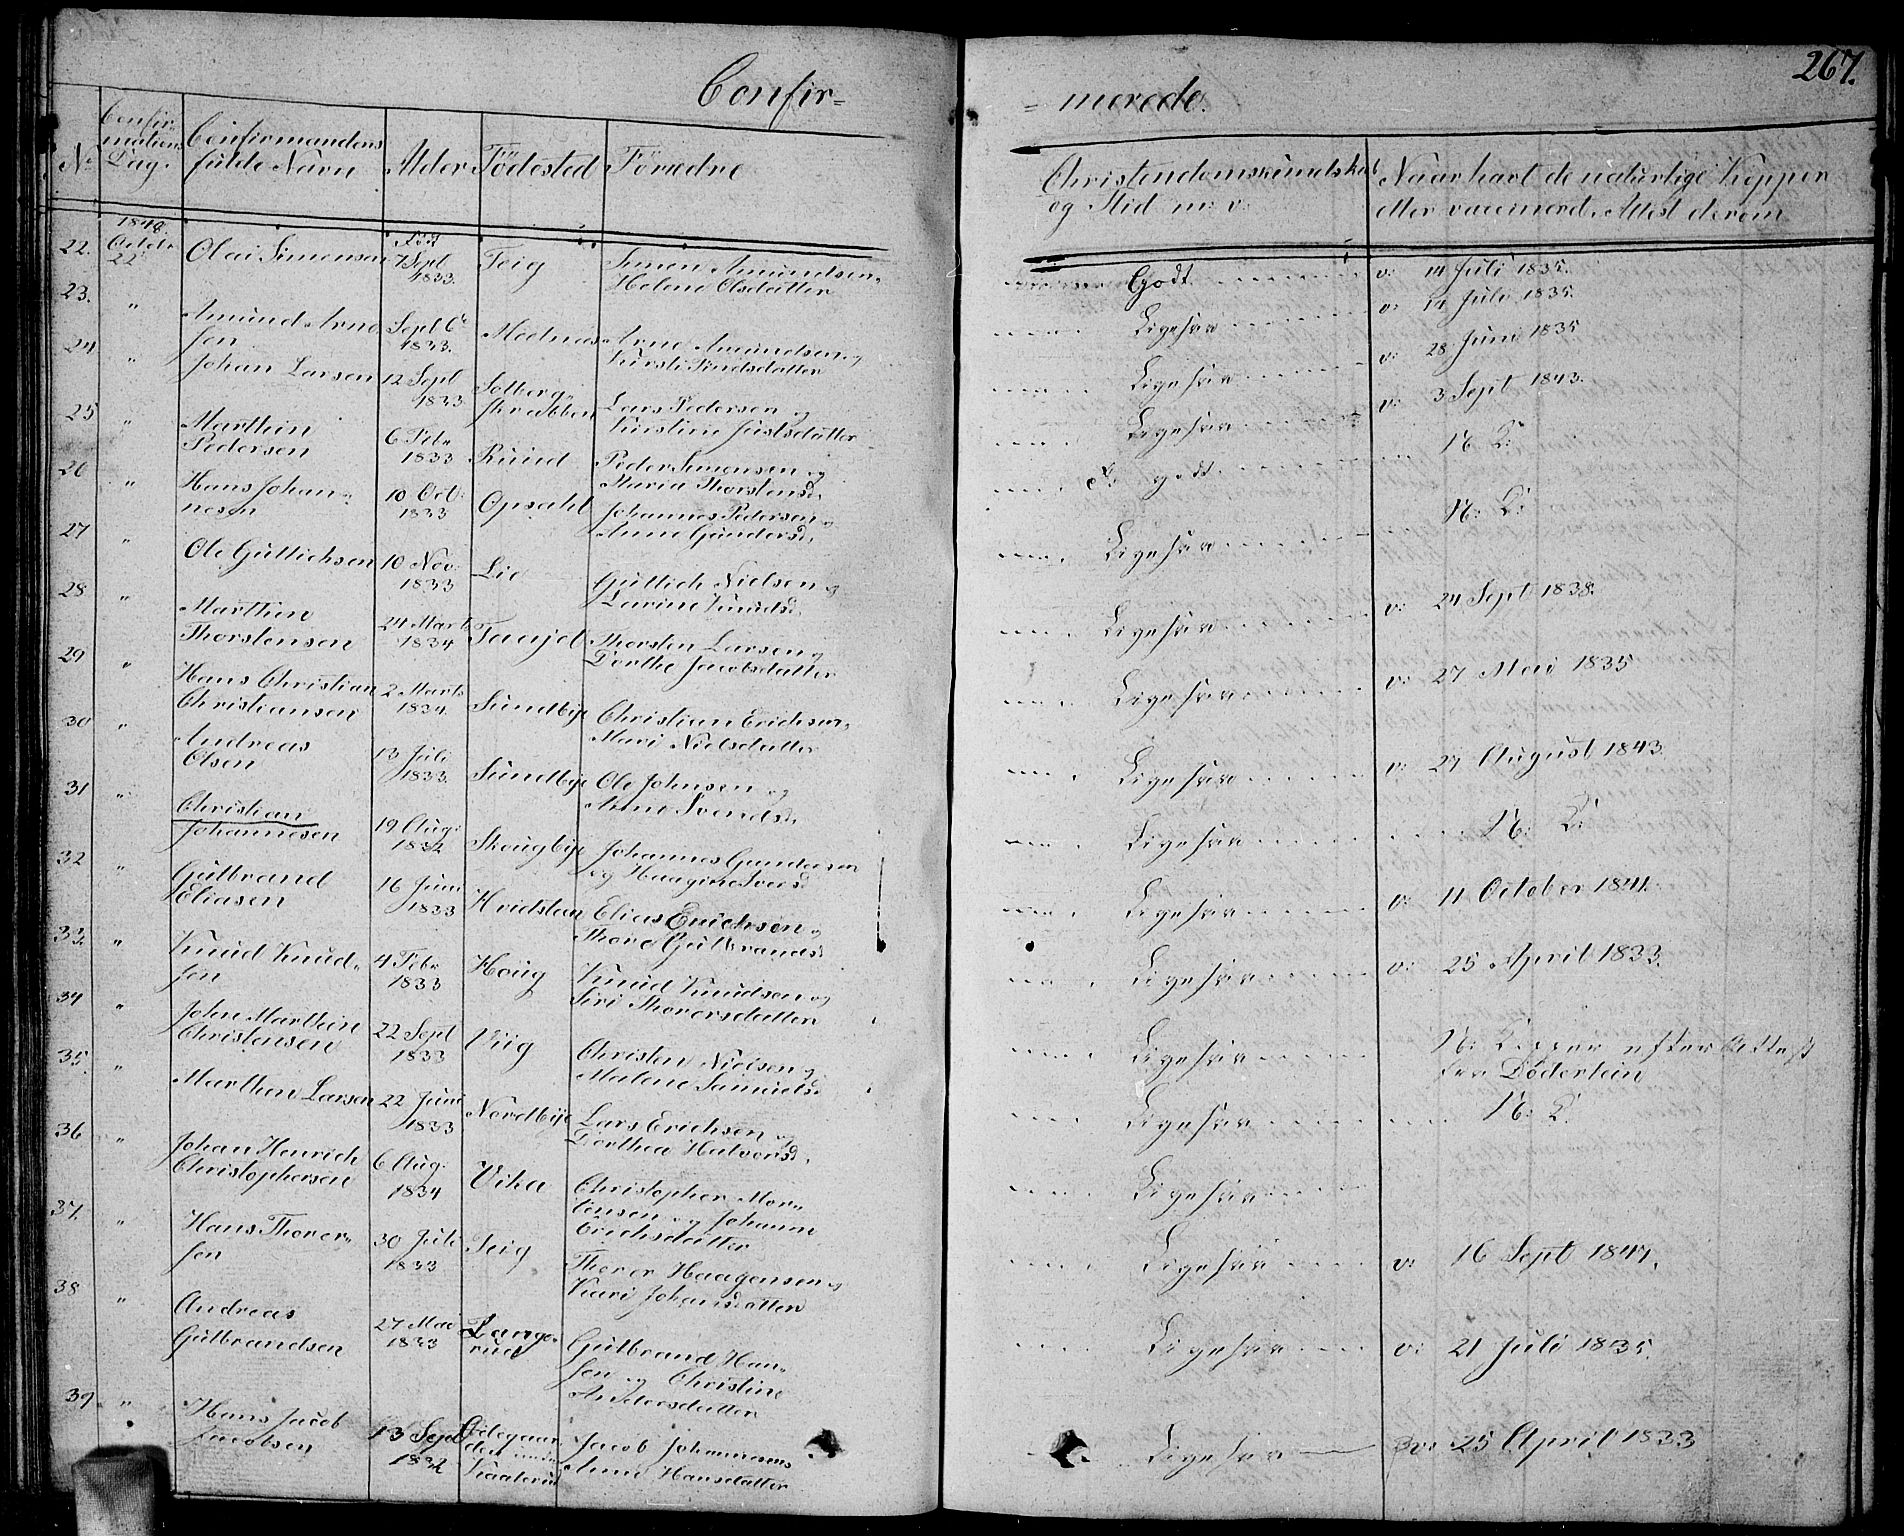 Confir=
= merede.
267.
No
Confir-
mations
Dag.
Confirmandens
fulde Navn
Alder
Födested
Forældre
Christendomskundskab
og Flid m: v:
Naar havt de naturlige Kopper
eller vaccinerd. Attest derom
22.
1848.
Octobr
22
Olai Simensen
Föd
7 Sept
1833.
Teig
Simen Amundsen
Helene Olsdatter
Godt
v: 14 Juli 1835.
23.
"
Amund Arne
sen
Sept 6
1833.
Moenas
Arne Amundsen og
Kirsti
Ligesaa
v: 14 Juli 1835.
24
"
Johan Larsen
12 Sept
1833
Solberg
skrabben
Lars Pedersen og
Kirstine Justsdatter
Ligesaa
v: 28 Juni 1835
25
"
Marthin
Pedersen
6 Feb
1833
Ruud
Peder Simensen og
Maria Thorstensd.
Ligesaa
v: 3 Sept 1843.
26
"
Hans Johan-
nesen
10 Oct:
1833
Opsahl
Johannes Pedersen og
Anne Gundersd.
godt
N: K:
27
"
Ole Gullichsen
10 Nov:
1833
Lie
Gullich Nielsen og
Larine Knudsd.
Ligesaa
N: K:
28
"
Marthin
Thorstensen
24 Marts
1834
Thorsten Larsen og
Dorthe Jacobsdatter
Ligesaa
v: 24 Sept 1838.
29
"
Hans Christian
Christiansen
2 Marts
1834.
Sundbye
Christian Erichsen
Mari Nielsdatter
Ligesaa
v: 27 Mai 1835
30
"
Andreas
Olsen
13 Juli
1833.
Sundbye
Ole Johnsen og
Anne Svendsd.
Ligesaa
v: 27 August 1843.
31
"
Christian
Johannesen
19 Aug:
1832
Skougbye
Johannes Gundersen
og Haagine Iversd
Ligesaa
N: K:
32
"
Gulbrand
Eliasen
16 Juni
1833
Hvidsten
Elias Erichsen og
Thore Gulbrandsd.
Ligesaa
v: 11 October 1841.
33.
"
Knud Knud-
sen
4 Feb:
1833
Houg
Knud Knudsen og
Siri Thoversdatter
Ligesaa
v: 25 April 1833.
34
"
John Marthin
Christensen
22 Sept
1833
Viig
Christen Nielsen og
Malene Samuelsd.
Ligesaa
N: Kopper efter Attest
fra Döderlein
35.
"
Marthin Larsen
22 Juni
1833
Nordbye
Lars Erichsen og
Dorthea Halvorsd.
Ligesaa
N: K.
36
"
Johan Henrich
Christophersen
6 Aug:
1834
Vika
Christopher Mor-
tensen og Johanne
Erichsdatter
Ligesaa
37.
"
Hans Thorer-
sen
30 Juli
1833
Teig
Thorer Haagensen og
Kari Johansdatter
Ligesaa
v: 16 Sept 1847.
38
"
Andreas
Gulbrandsen
27 Mai
1833
Lange-
rud
Gulbrand Han-
sen og Christine
Andersdatter
Ligesaa
v: 21 Juli 1835.
39
"
Hans Jacob
Jacobsen
13 Sept
1832
Ödegaar
den under
Kaaterud
Jacob Johannesens
Anne Hansdatter
Ligesaa
v: 25 April 1833